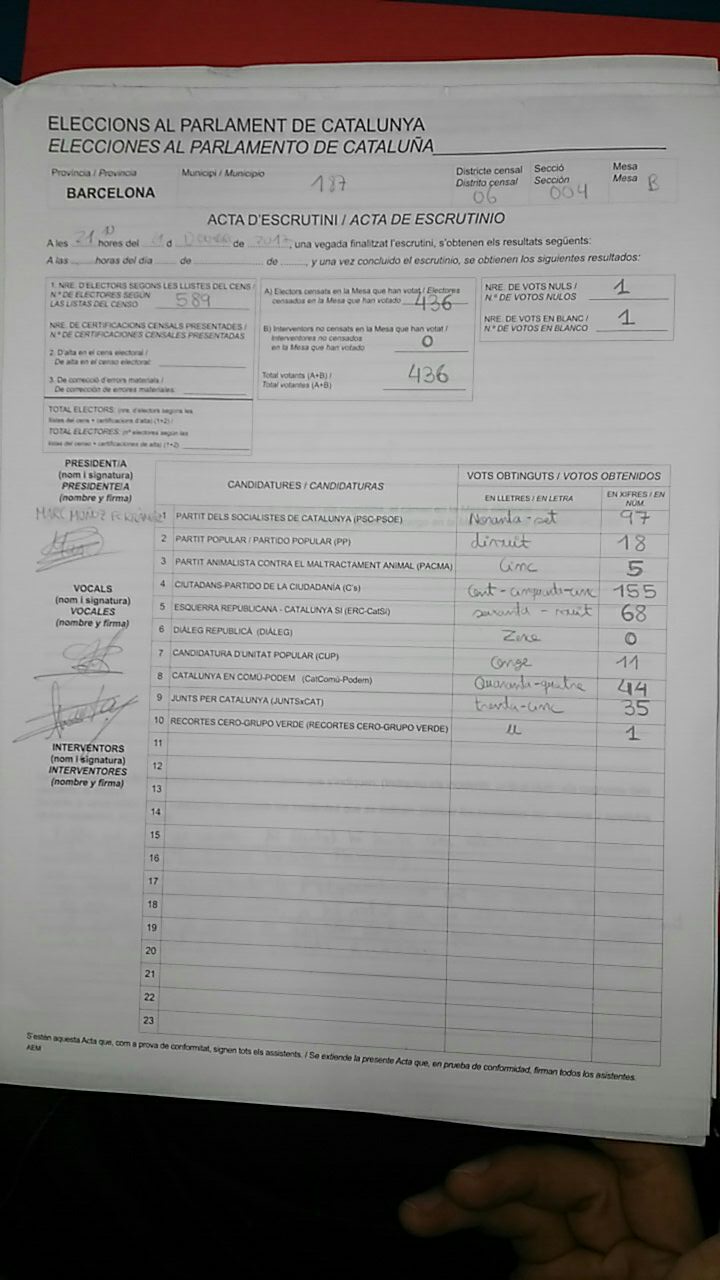 ELECCIONS AL PARLAMENT DE CATALUNYA
ELECCIONES AL PARLAMENTO DE CATALUÑA
Província / Provincia
BARCELONA
Municipi / Municipio
187
Districte censal
Distrito censal
06
Secció
Sección
004
Mesa
Mesa
B
ACTA D'ESCRUTINI / ACTA DE ESCRUTINIO
A les 21 hores del d de 2017, una vegada finalitzat l'escrutini, s'obtenen els resultats següents:
A las ........ horas del día ...... de .................... de ......., y una vez concluido el escrutinio, se obtienen los siguientes resultados:
1. NRE. D'ELECTORS SEGONS LES LLISTES DEL CENS /
N.º DE ELECTORES SEGÚN
LAS LISTAS DEL CENSO
589
NRE. DE CERTIFICACIONS CENSALS PRESENTADES /
N.º DE CERTIFICACIONES CENSALES PRESENTADAS
2. D'alta en el cens electoral /
De alta en el censo electoral:
3. De correcció d'errors materials /
De corrección de errores materiales:
TOTAL ELECTORS: (nre. d'electors segons les
llistes del cens + certificacions d'alta) (1+2) /
TOTAL ELECTORES: (nº electores según las
listas del censo + certificaciones de alta) (1+2)
A) Electors censats en la Mesa que han votat / Electores
censados en la Mesa que han votado
436
B) Interventors no censats en la Mesa que han votat /
Interventores no censados
en la Mesa que han votado
0
Total votants (A+B) /
Total votantes (A+B)
436
NRE. DE VOTS NULS /
N.º DE VOTOS NULOS
1
NRE. DE VOTS EN BLANC /
N.º DE VOTOS EN BLANCO
1
PRESIDENT/A
(nom i signatura)
PRESIDENTE/A
(nombre y firma)
MARC MUÑOZ
VOCALS
(nom i signatura)
VOCALES
(nombre y firma)
INTERVENTORS
(nom i signatura)
INTERVENTORES
(nombre y firma)
CANDIDATURES / CANDIDATURAS
VOTS OBTINGUTS / VOTOS OBTENIDOS
EN LLETRES / EN LETRA
EN XIFRES / EN NÚM.
1 PARTIT DELS SOCIALISTES DE CATALUNYA (PSC-PSOE) Noranta-set 97
2 PARTIT POPULAR / PARTIDO POPULAR (PP) divuit 18
3 PARTIT ANIMALISTA CONTRA EL MALTRACTAMENT ANIMAL (PACMA) Cinc 5
4 CIUTADANS-PARTIDO DE LA CIUDADANÍA (C's) Cent-cinquanta-cinc 155
5 ESQUERRA REPUBLICANA - CATALUNYA SÍ (ERC-CatSí) 68
6 DIÀLEG REPUBLICÀ (DIÀLEG) Zero 0
7 CANDIDATURA D'UNITAT POPULAR (CUP) Onze 11
8 CATALUNYA EN COMÚ-PODEM (CatComú-Podem) Quaranta-quatre 44
9 JUNTS PER CATALUNYA (JUNTSxCAT) trenta-cinc 35
10 RECORTES CERO-GRUPO VERDE (RECORTES CERO-GRUPO VERDE) U 1
11
12
13
14
15
16
17
18
19
20
21
22
23
S'estén aquesta Acta que, com a prova de conformitat, signen tots els assistents. / Se extiende la presente Acta que, en prueba de conformidad, firman todos los asistentes.
AEM